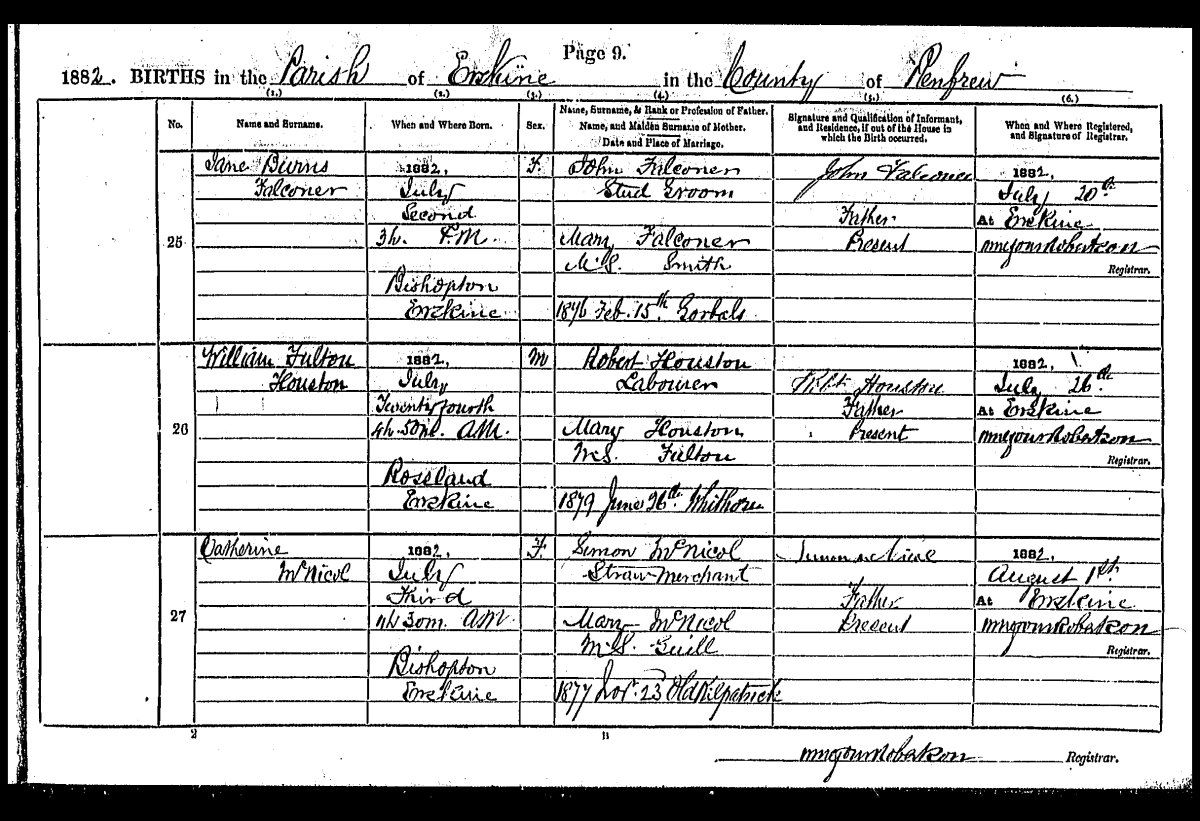 Page 9.
1882. BIRTHS in the Parish of Erskine in the County of Renfrew
(1.) (2.) (3.) (4.) (5.) (6.)
No.
Name and Surname.
When and Where Born.
Sex.
Name, Surname, & Rank or Profession of Father.
Name, and Maiden Surname of Mother.
Date and Place of Marriage.
Signature and Qualification of Informant,
and Residence, if out of the House in
which the Birth occurred.
When and Where Registered,
and Signature of Registrar.
25
Jane Burns
Falconer
1882,
July
Second
3h. P.M.
Bishopton
Erskine
F.
John Falconer
Stud Groom
Mary Falconer
M.S. Smith
1876 Feb. 15th Gorbals
John Falconer
Father
Present
1882,
July 20th
At Erskine
Robertson
Registrar.
26
William Fulton
Houston
1882,
July
Twenty fourth
4h. 50m. A.M.
Rossland
Erskine
M
Robert Houston
Labourer
Mary Houston
M.S. Fulton
1879 June 26th Whithorn
Robt Houston
Father
Present
1882,
July 26th
At Erskine
Robertson
Registrar.
27
Catherine
McNicol
1882,
July
Third
4h 30m. A.M.
Bishopton
Erskine
F.
Simon McNicol
Straw Merchant
Mary McNicol
M.S. Guill
1877 Nov. 23 Old Kilpatrick
Simon McNicol
Father
Present
1882,
August 1st
At Erskine
Robertson
Registrar.
2
B
Robertson Registrar.